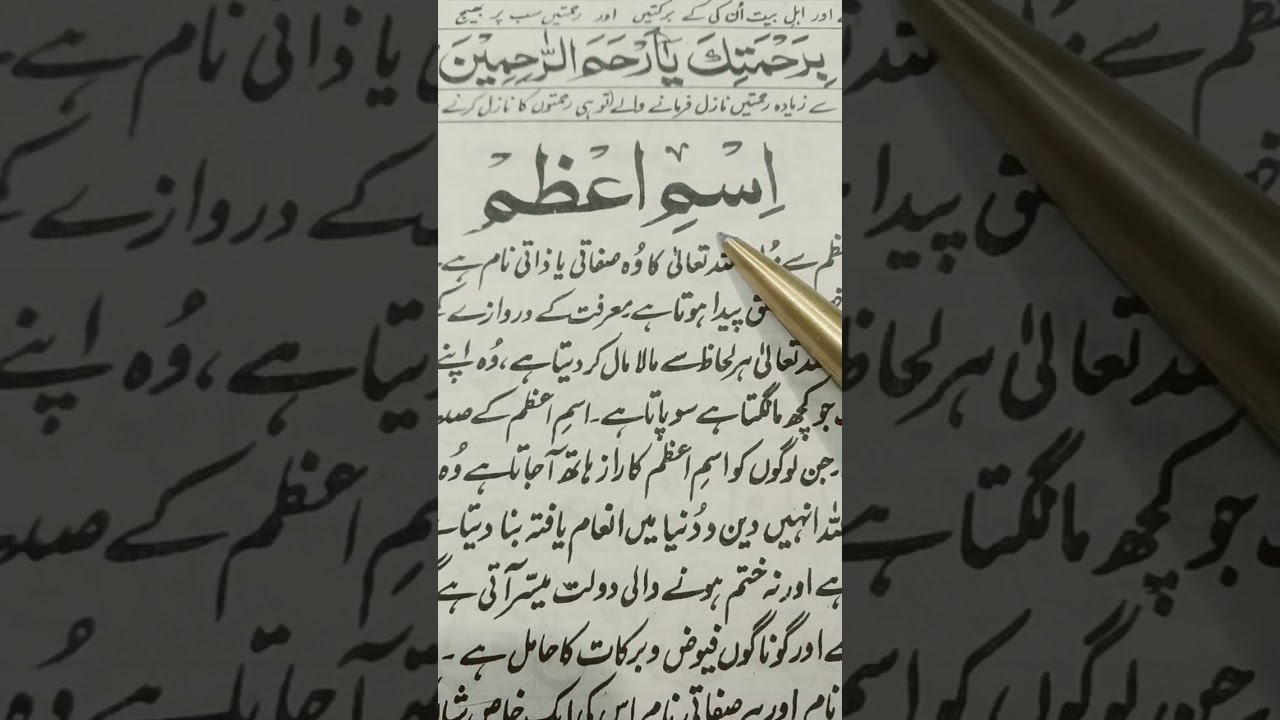 اور اہل بیت اُن کی کے برکتیں اور رحمتیں سب پر بھیج
بِرَحْمَتِكَ يَا اَرْحَمَ الرّٰحِمِيْنَ
سے زیادہ رحمتیں نازل فرمانے والے (تو ہی رحمتوں کا نازل کرنے
اِسْمِ اعْظَمْ
سے تعالیٰ کا وُہ صفاتی یا ذاتی نام ہے
پیدا ہوتا ہے۔ معرفت کے دروازے
تعالیٰ ہر لحاظ سے مالا مال کر دیتا ہے، وُہ اپنے
جو کچھ مانگتا ہے سو پاتا ہے۔ اسمِ اعظم کے
جن لوگوں کو اسمِ اعظم کا راز ہاتھ آجاتا ہے وُہ
انہیں دین و دُنیا میں انعام یافتہ بنا دیتا
ہے اور نہ ختم ہونے والی دولت میسّر آتی ہے
اور گوناگوں فیوض و برکات کا حامل ہے ۔
نام اور ہر صفاتی نام اس کی ایک خاص